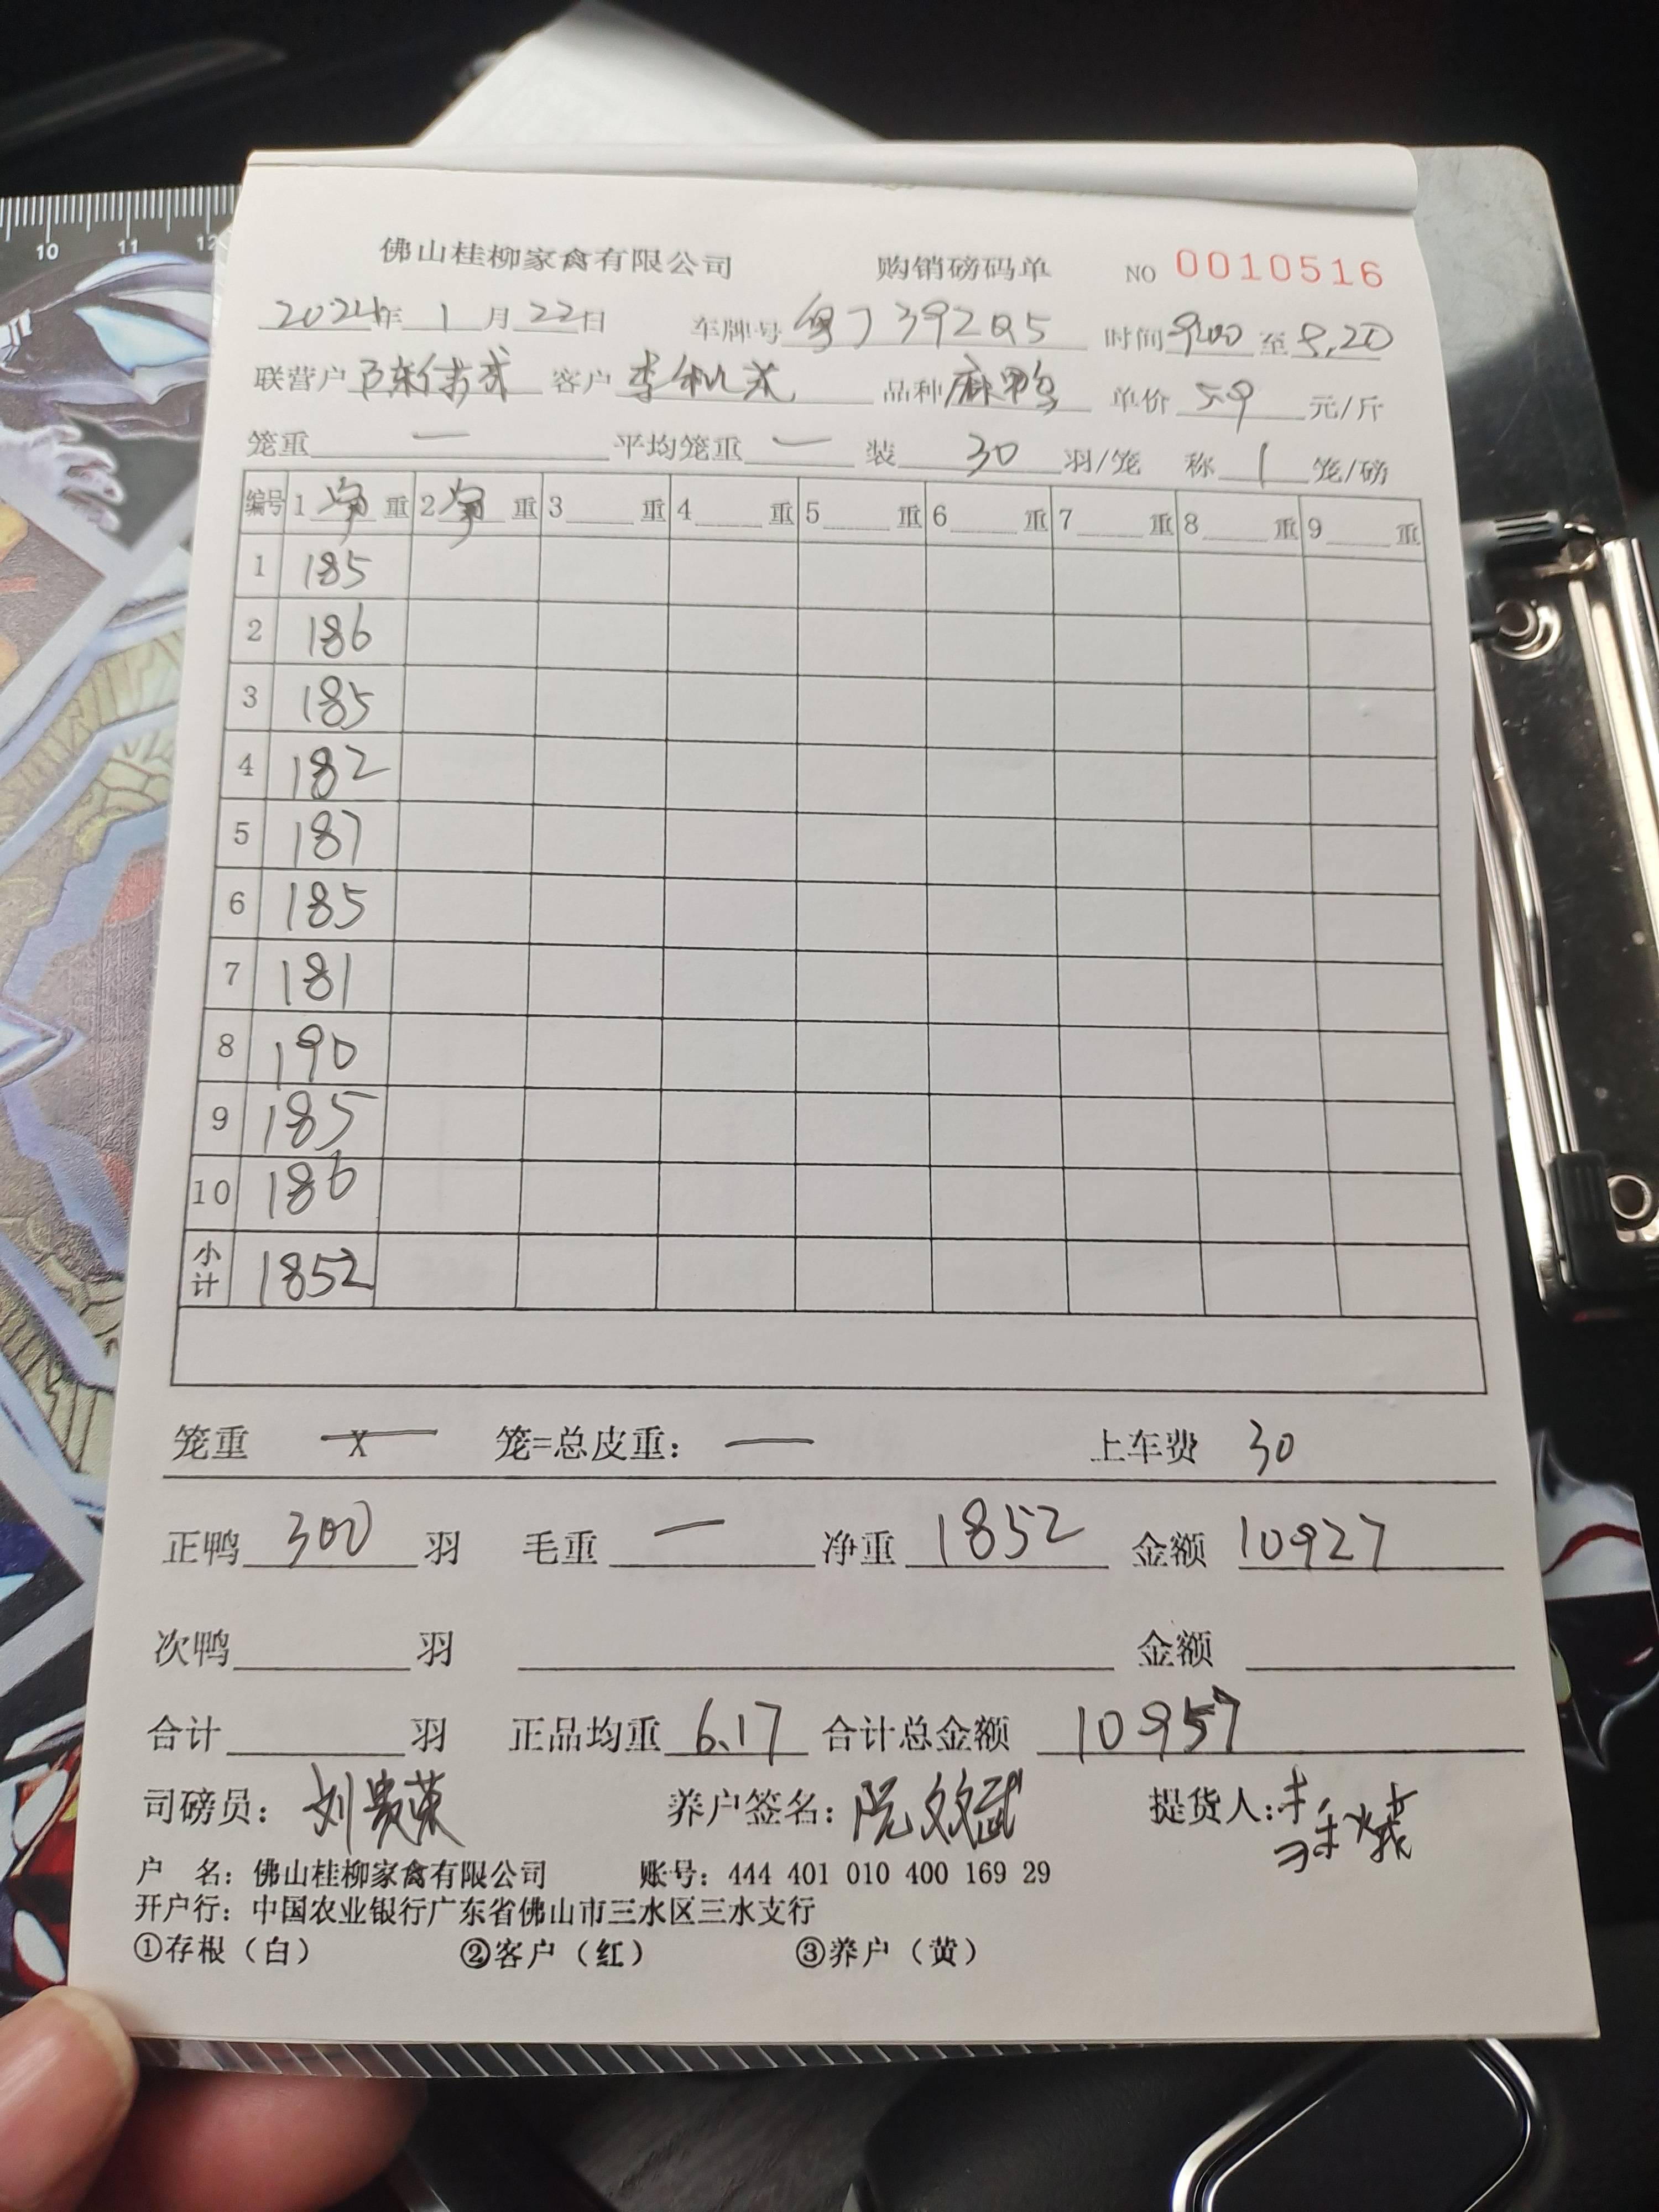 10 11 12
佛山桂柳家禽有限公司 购销磅码单 NO 0010516
2024年 1 月 22 日 车牌号 粤J392Q5 时间 9.00 至 9.20
联营户 陈 客户 李 品种 麻鸭 单价 5.9 元/斤
笼重 — 平均笼重 — 装 30 羽/笼 称 1 笼/磅
编号 1 净 重 2 净 重 3 重 4 重 5 重 6 重 7 重 8 重 9 重
1 185
2 186
3 185
4 182
5 187
6 185
7 181
8 190
9 185
10 186
小计 1852
笼重 — X 笼=总皮重: — 上车费 30
正鸭 300 羽 毛重 — 净重 1852 金额 10927
次鸭 羽 金额
合计 羽 正品均重 6.17 合计总金额 10957
司磅员: 刘贵荣 养户签名: 阮效斌 提货人:
户 名: 佛山桂柳家禽有限公司 账号: 444 401 010 400 169 29
开户行: 中国农业银行广东省佛山市三水区三水支行
①存根(白) ②客户(红) ③养户(黄)